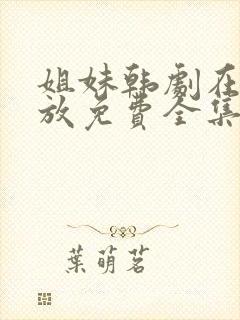 姐妹韩剧在
放免费全集
葉萌茗